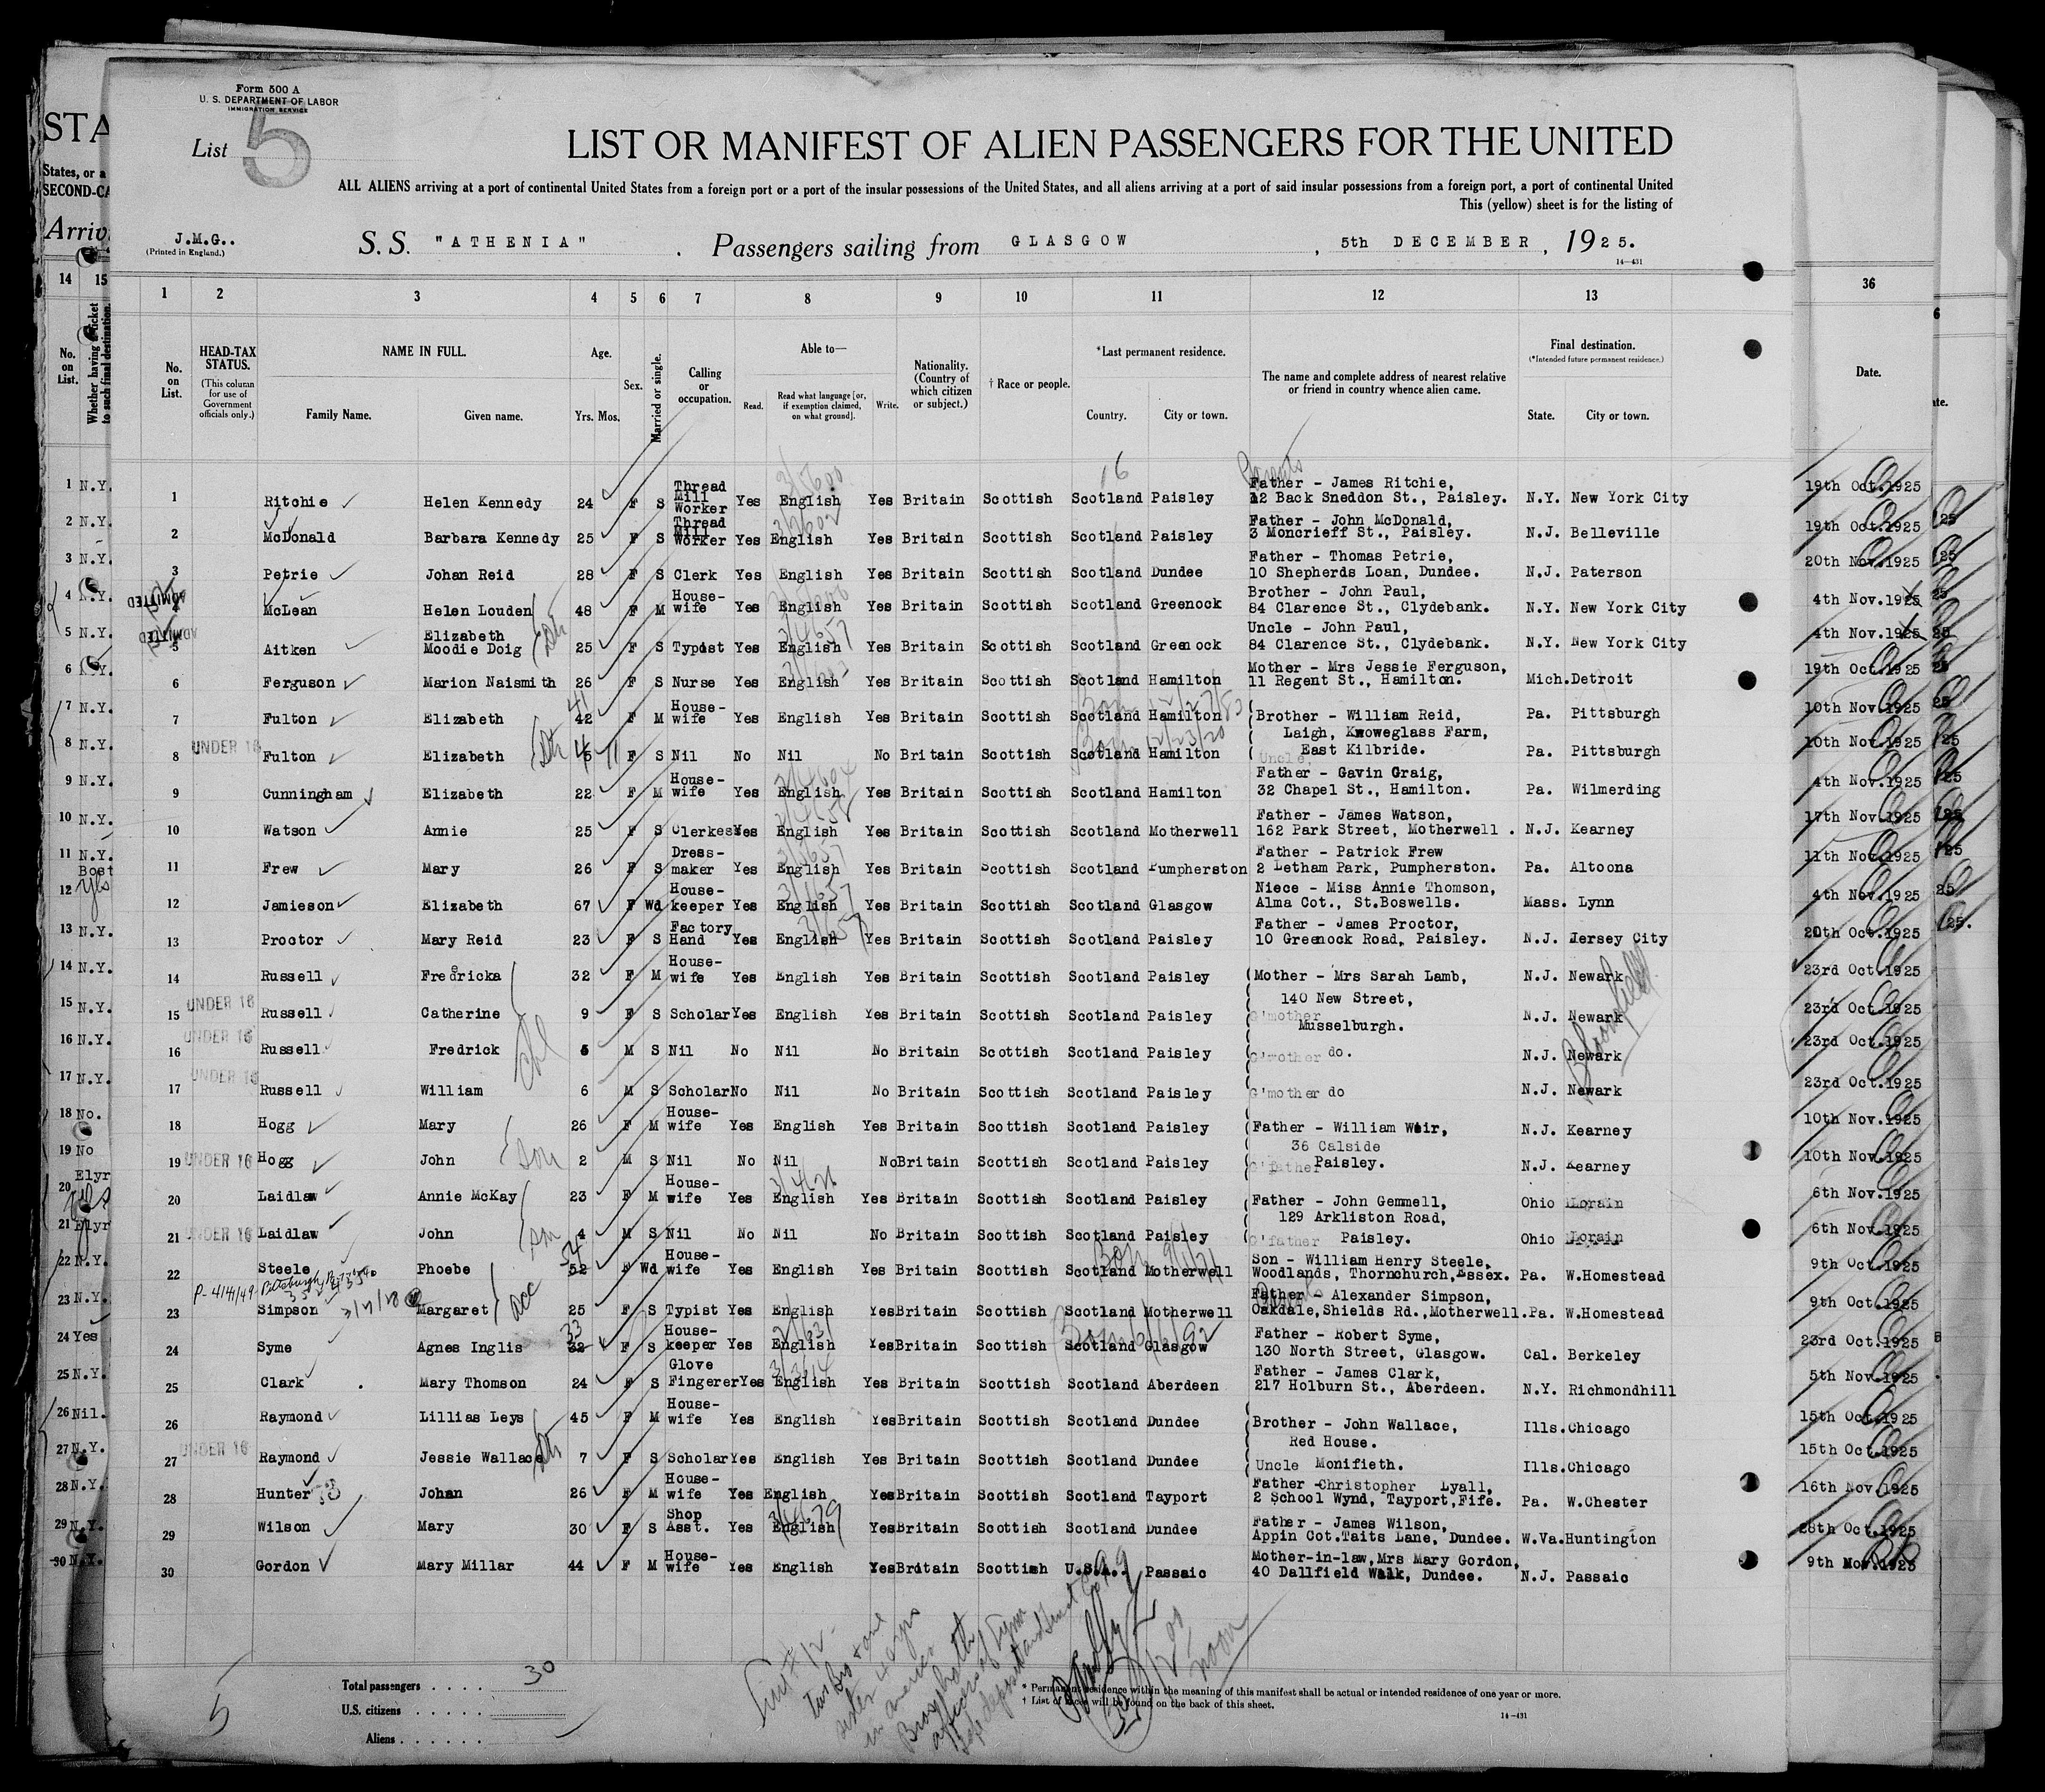 Form 500 A
U. S. DEPARTMENT OF LABOR
IMMIGRATION SERVICE
List 5
LIST OR MANIFEST OF ALIEN PASSENGERS FOR THE UNITED
ALL ALIENS arriving at a port of continental United States from a foreign port or a port of the insular possessions of the United States, and all aliens arriving at a port of said insular possessions from a foreign port, a port of continental United
This (yellow) sheet is for the listing of
J.M.G..
(Printed in England.)
S. S. "ATHENIA" . Passengers sailing from GLASGOW , 5th DECEMBER , 1925.
14—431
1 2 3 4 5 6 7 8 9 10 11 12 13
No. on List.
HEAD-TAX STATUS.
(This column for use of Government officials only.)
NAME IN FULL.
Family Name. Given name.
Age.
Yrs. Mos.
Sex.
Married or single.
Calling or occupation.
Able to—
Read. Read what language [or, if exemption claimed, on what ground]. Write.
Nationality. (Country of which citizen or subject.)
† Race or people.
*Last permanent residence.
Country. City or town.
The name and complete address of nearest relative or friend in country whence alien came.
Final destination.
(*Intended future permanent residence.)
State. City or town.
36
Date.
1 Ritchie Helen Kennedy 24 F S Thread Mill Worker Yes English Yes Britain Scottish Scotland Paisley Father - James Ritchie, 12 Back Sneddon St., Paisley. N.Y. New York City 19th Oct.1925
2 McDonald Barbara Kennedy 25 F S Thread Mill Worker Yes English Yes Britain Scottish Scotland Paisley Father - John McDonald, 3 Moncrieff St., Paisley. N.J. Belleville 19th Oct.1925
3 Petrie Johan Reid 28 F S Clerk Yes English Yes Britain Scottish Scotland Dundee Father - Thomas Petrie, 10 Shepherds Loan, Dundee. N.J. Paterson 20th Nov.1925
ADMITTED 4 McLean Helen Louden 48 F M House-wife Yes English Yes Britain Scottish Scotland Greenock Brother - John Paul, 84 Clarence St., Clydebank. N.Y. New York City 4th Nov.1925
ADMITTED 5 Aitken Elizabeth Moodie Doig 25 F S Typist Yes English Yes Britain Scottish Scotland Greenock Uncle - John Paul, 84 Clarence St., Clydebank. N.Y. New York City 4th Nov.1925
6 Ferguson Marion Naismith 26 F S Nurse Yes English Yes Britain Scottish Scotland Hamilton Mother - Mrs Jessie Ferguson, 11 Regent St., Hamilton. Mich. Detroit 19th Oct.1925
7 Fulton Elizabeth 42 41 F M House-wife Yes English Yes Britain Scottish Scotland Hamilton Brother - William Reid, Laigh, Kwoweglass Farm, East Kilbride. Pa. Pittsburgh 10th Nov.1925
8 UNDER 16 Fulton Elizabeth 5 4 11 F S Nil No Nil No Britain Scottish Scotland Hamilton Uncle, Pa. Pittsburgh 10th Nov.1925
9 Cunningham Elizabeth 22 F M House-wife Yes English Yes Britain Scottish Scotland Hamilton Father - Gavin Graig, 32 Chapel St., Hamilton. Pa. Wilmerding 4th Nov.1925
10 Watson Annie 25 F S Clerkess Yes English Yes Britain Scottish Scotland Motherwell Father - James Watson, 162 Park Street, Motherwell . N.J. Kearney 17th Nov.1925
11 Frew Mary 26 F S Dress-maker Yes English Yes Britain Scottish Scotland Pumpherston Father - Patrick Frew 2 Letham Park, Pumpherston. Pa. Altoona 11th Nov.1925
12 Jamieson Elizabeth 67 F Wd House-keeper Yes English Yes Britain Scottish Scotland Glasgow Niece - Miss Annie Thomson, Alma Cot., St.Boswells. Mass. Lynn 4th Nov.1925
13 Proctor Mary Reid 23 F S Factory Hand Yes English Yes Britain Scottish Scotland Paisley Father - James Proctor, 10 Greenock Road, Paisley. N.J. Jersey City 20th Oct.1925
14 Russell Fredericka 32 F M House-wife Yes English Yes Britain Scottish Scotland Paisley Mother - Mrs Sarah Lamb, 140 New Street, Musselburgh. N.J. Newark Bloomfield 23rd Oct.1925
15 UNDER 16 Russell Catherine 9 F S Scholar Yes English Yes Britain Scottish Scotland Paisley G'mother N.J. Newark 23rd Oct.1925
16 UNDER 16 Russell Fredrick 5 M S Nil No Nil No Britain Scottish Scotland Paisley G'mother do. N.J. Newark 23rd Oct.1925
17 UNDER 16 Russell William 6 M S Scholar No Nil No Britain Scottish Scotland Paisley G'mother do N.J. Newark 23rd Oct.1925
18 Hogg Mary 26 F M House-wife Yes English Yes Britain Scottish Scotland Paisley Father - William Weir, 36 Calside Paisley. N.J. Kearney 10th Nov.1925
19 UNDER 16 Hogg John son 2 M S Nil No Nil No Britain Scottish Scotland Paisley G'father N.J. Kearney 10th Nov.1925
20 Laidlaw Annie McKay 23 F M House-wife Yes English Yes Britain Scottish Scotland Paisley Father - John Gemmell, 129 Arkliston Road, Paisley. Ohio Lorain 6th Nov.1925
21 UNDER 16 Laidlaw John 4 M S Nil No Nil No Britain Scottish Scotland Paisley G'father Ohio Lorain 6th Nov.1925
22 Steele Phoebe 52 54 F Wd House-wife Yes English Yes Britain Scottish Scotland Motherwell Son - William Henry Steele, Woodlands, Thornchurch,Essex. Pa. W.Homestead 9th Oct.1925
23 Simpson Margaret acc 25 F S Typist Yes English Yes Britain Scottish Scotland Motherwell Father - Alexander Simpson, Oakdale,Shields Rd.,Motherwell. Pa. W.Homestead 9th Oct.1925
24 Syme Agnes Inglis 32 33 F S House-keeper Yes English Yes Britain Scottish Scotland Glasgow Father - Robert Syme, 130 North Street, Glasgow. Cal. Berkeley 23rd Oct.1925
25 Clark Mary Thomson 24 F S Glove Fingerer Yes English Yes Britain Scottish Scotland Aberdeen Father - James Clark, 217 Holburn St., Aberdeen. N.Y. Richmondhill 5th Nov.1925
26 Raymond Lillias Leys 45 F M House-wife Yes English Yes Britain Scottish Scotland Dundee Brother - John Wallace, Red House. Ills. Chicago 15th Oct.1925
27 UNDER 16 Raymond Jessie Wallace 7 F S Scholar Yes English Yes Britain Scottish Scotland Dundee Uncle Monifieth. Ills. Chicago 15th Oct.1925
28 Hunter Johan 26 F M House-wife Yes English Yes Britain Scottish Scotland Tayport Father -Christopher Lyall, 2 School Wynd, Tayport,Fife. Pa. W.Chester 16th Nov.1925
29 Wilson Mary 30 F S Shop Asst. Yes English Yes Britain Scottish Scotland Dundee Father - James Wilson, Appin Cot.Taits Lane, Dundee. W.Va. Huntington 28th Oct.1925
30 Gordon Mary Millar 44 F M House-wife Yes English Yes Britain Scottish U.S.A. Passaic Mother-in-law,Mrs Mary Gordon, 40 Dallfield Walk, Dundee. N.J. Passaic 9th Nov.1925
Total passengers . . . . . 30
U.S. citizens . . . . . .
Aliens . . . . . .
5
* Permanent residence within the meaning of this manifest shall be actual or intended residence of one year or more.
† List of races will be found on the back of this sheet.
14—431